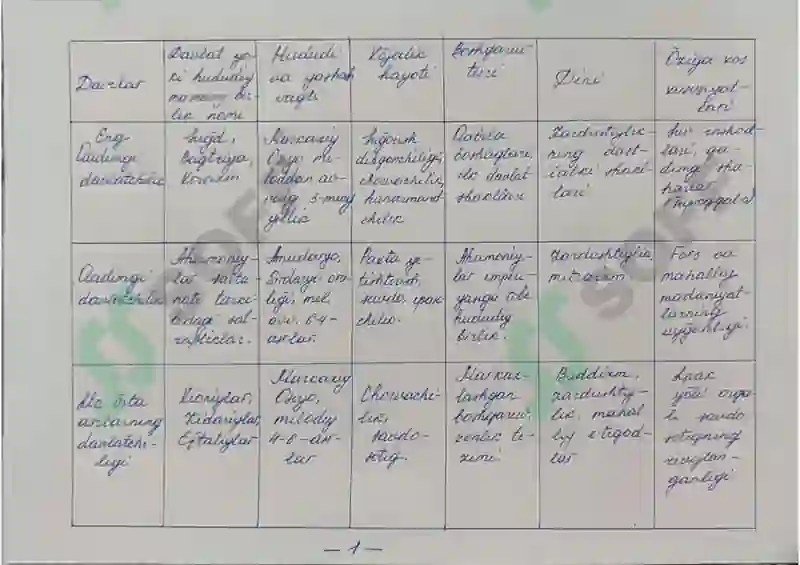 Davrlar
Davlat yo-
ki hududiy
ma'muriy bir-
lik nomi
Hududi
va yashash
vaqti
Xo'jalik
hayoti
Boshqaruv
tizi
Dini
O'ziga xos
xususiyat-
lari
Eng
qadimgi
davlatchilik
Sug'd,
Baqtriya,
Xorazm
Markaziy
Osiyo mi-
loddan av-
valgi 3-ming
yillik
Sug'orish
dehqonchiligi,
chorvachilik,
hunarmand-
chilik
Qabila
boshliqlari,
ilk davlat
shakllari
Zardushtiylik-
ning dast-
labki shakl-
lari
qa-
dimgi sha-
harlar
Qadimgi
davlatchilik
Ahamoniy-
lar salta-
nati tarki-
bidagi sat-
rapliklar.
Amudaryo,
Sirdaryo ora-
lig'i, mil.
avv. 6-4-
asrlar
Paxta ye-
tishtirish,
savdo, ipak-
chilik.
Ahamoniy-
lar imperi-
yasiga tobe
hududiy
birlik.
Zardushtiylik,
mitraizm
Fors va
mahalliy
madaniyat-
larning
uyg'unligi.
Ilk o'rta
asrlarning
davlatchi-
ligi
Xioniylar,
Kidariylar,
Eftaliylar
Markaziy
Osiyo,
milodiy
4-6-asr-
lar
Chorvachi-
lik,
savdo-
sotiq.
Markaz-
lashgan
boshqaruv,
xonlik ti-
zimi
Buddizm,
zardushtiy-
lik, mahal-
liy e'tiqod-
lar
Ipak
yo'li orqa-
li savdo
sotiqning
rivojlan-
ganligi
- 1 -